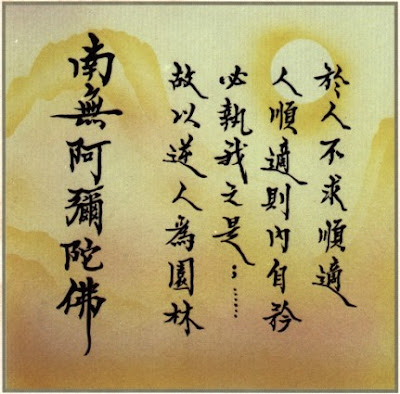 於人不求順適
人順適則內自矜
必執我之是；……
故以逆人為園林
南無阿彌陀佛